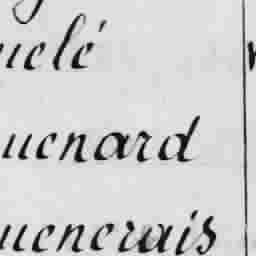 uelé
uenard
uenerais